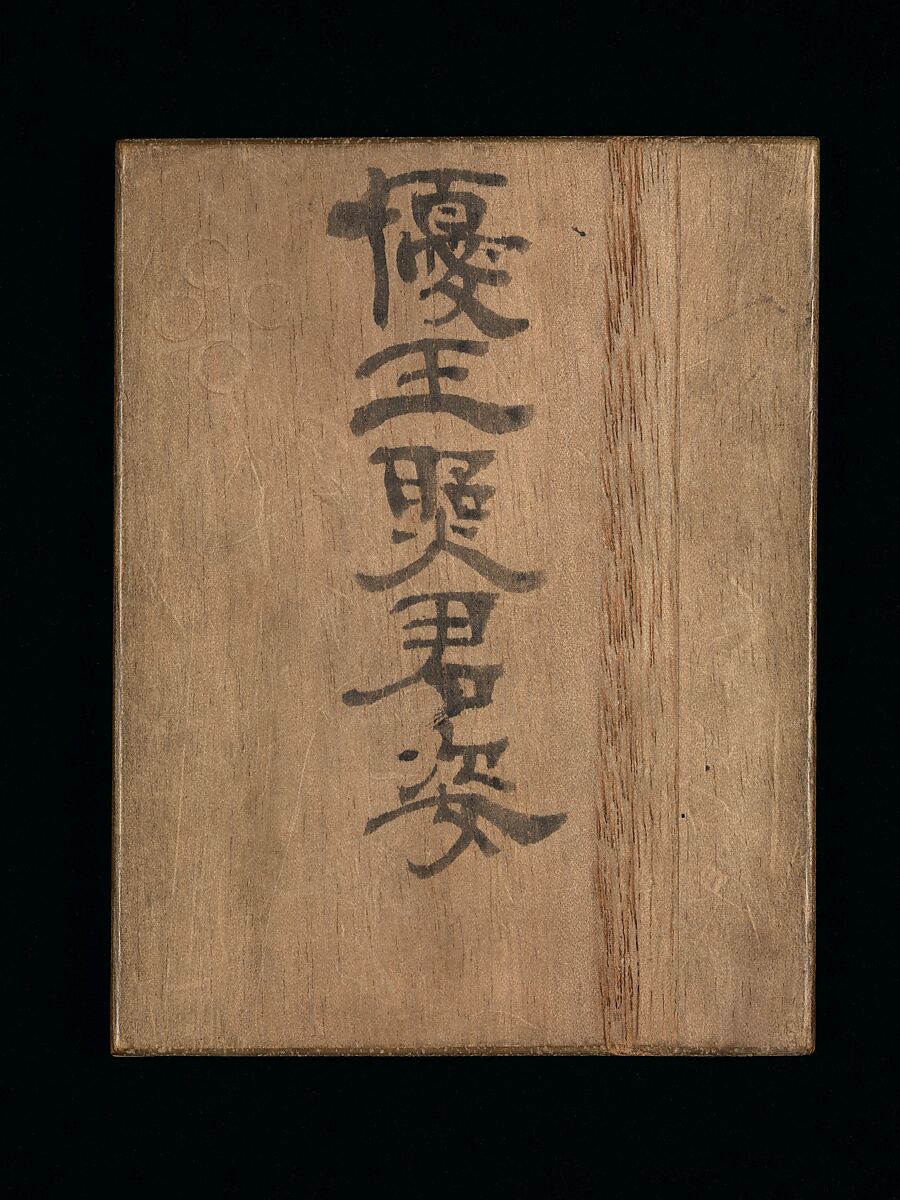 優王照君姿